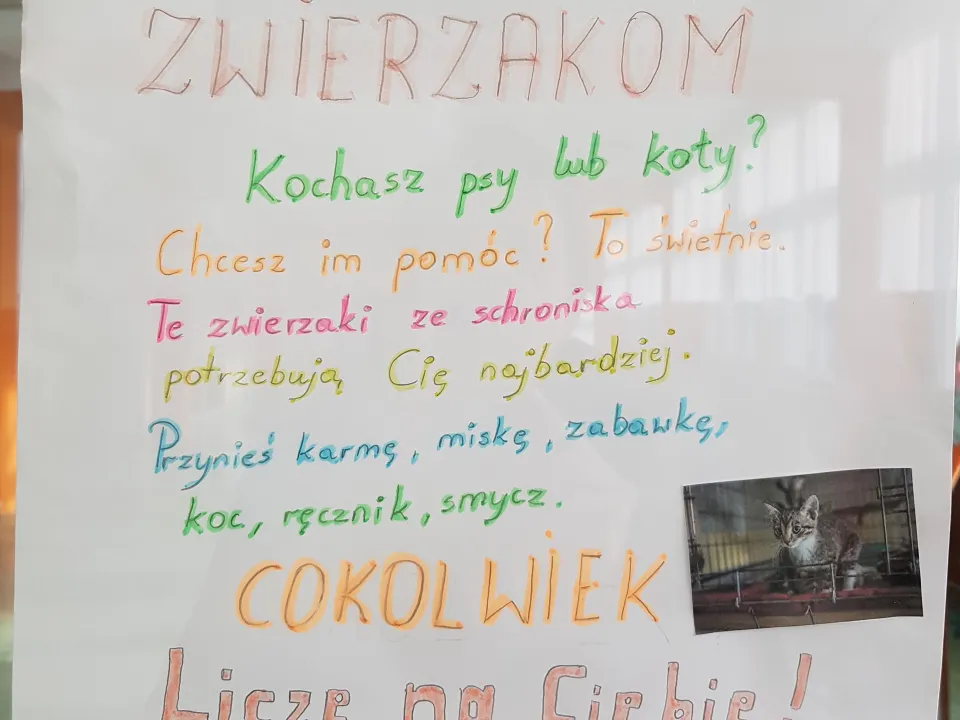 ZWIERZAKOM
Kochasz psy lub koty?
Chcesz im pomóc? To świetnie.
Te zwierzaki ze schroniska
potrzebują Cię najbardziej.
Przynieś karmę, miskę, zabawkę,
koc, ręcznik, smycz.
COKOLWIEK
Liczę na Ciebie!